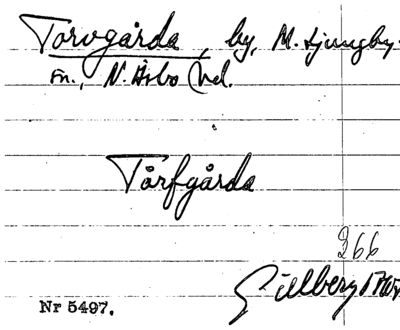 Torvgårda, by, M. Ljungby
Sn., N. Åsbo hd.
Tårfgårda
366
Gillberg
Nr 5497.